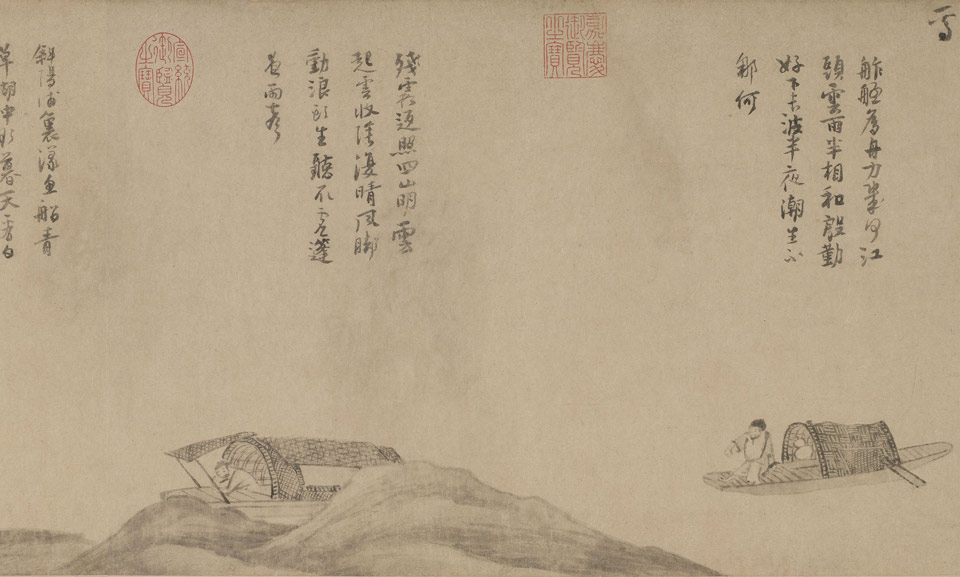 舴艋為舟力幾何江
頭雲雨半相和殷勤
好下長波半夜潮生不
那何
嘉慶御覽之寶
殘霞返照四山明雲
起雲收陰復晴風脚
動浪頭生聽不虛篷
夜雨聲
宣統御覽之寶
斜陽浦裏漾魚船青
草湖中欲暮天看白